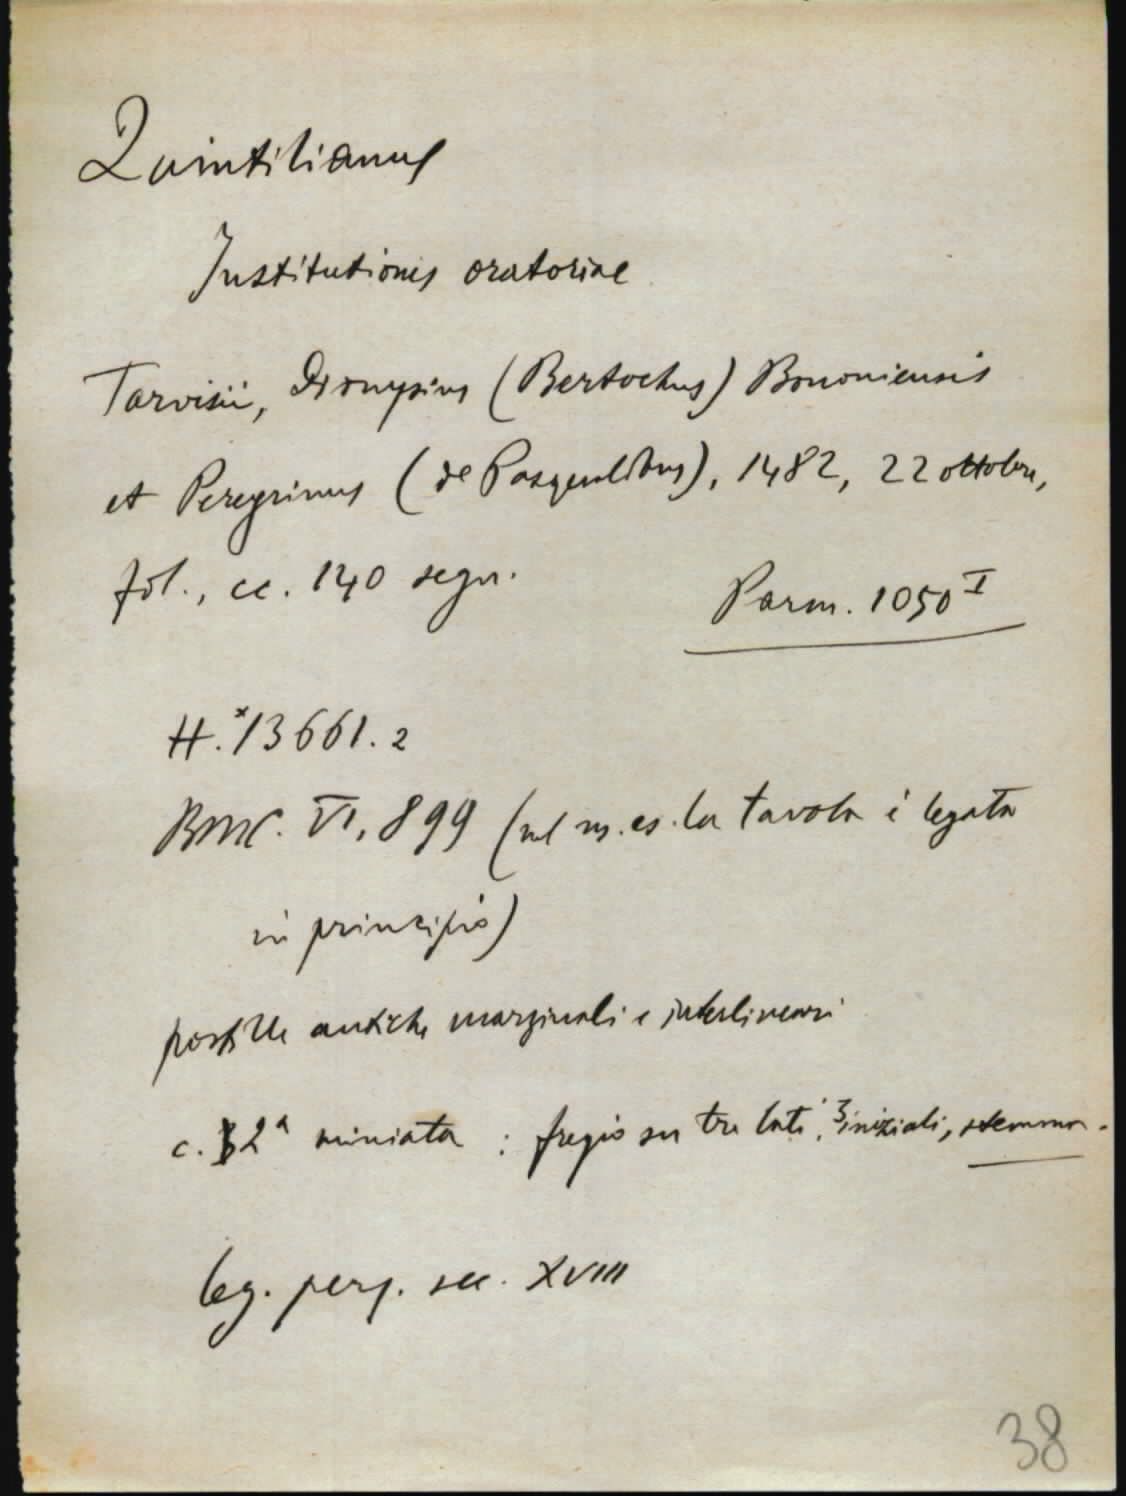 Quintilianus
Institutiones oratoriae
Tarvisii, Dionysius (Bertochus) Bononiensis
et Peregrinus (de Pasqualibus), 1482, 22 ottobre,
fol., cc. 140 segn.
Parm. 1050 I
H.*13661.2
BMC. VI, 899 (nel ns. es. la tavola è legata
in principio)
postille antiche marginali e interlineari
c. 2a miniata : fregio su tre lati, 3 iniziali, stemma.
leg. perg. sec. XVIII
38